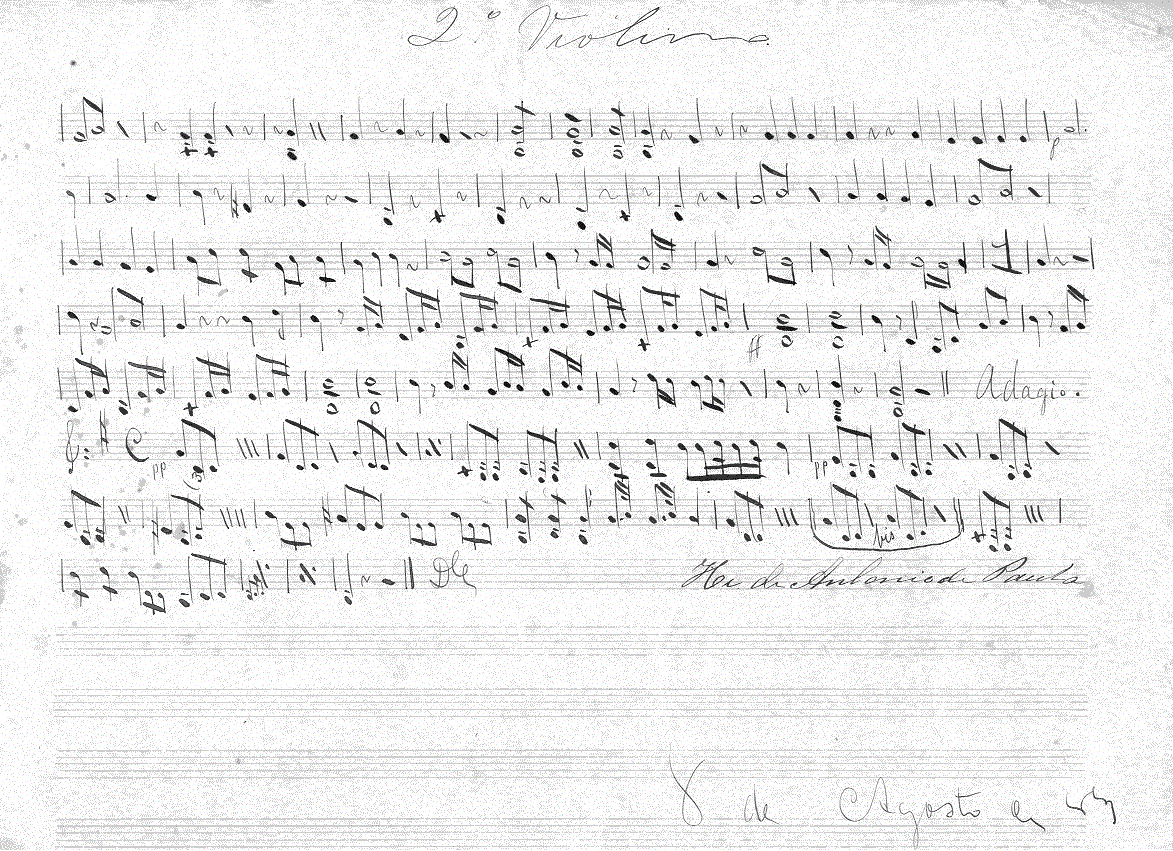 2.º Violino
p
ff
Adagio.
pp pp
bis
DC de Antonio de Paula
8 de Agosto de